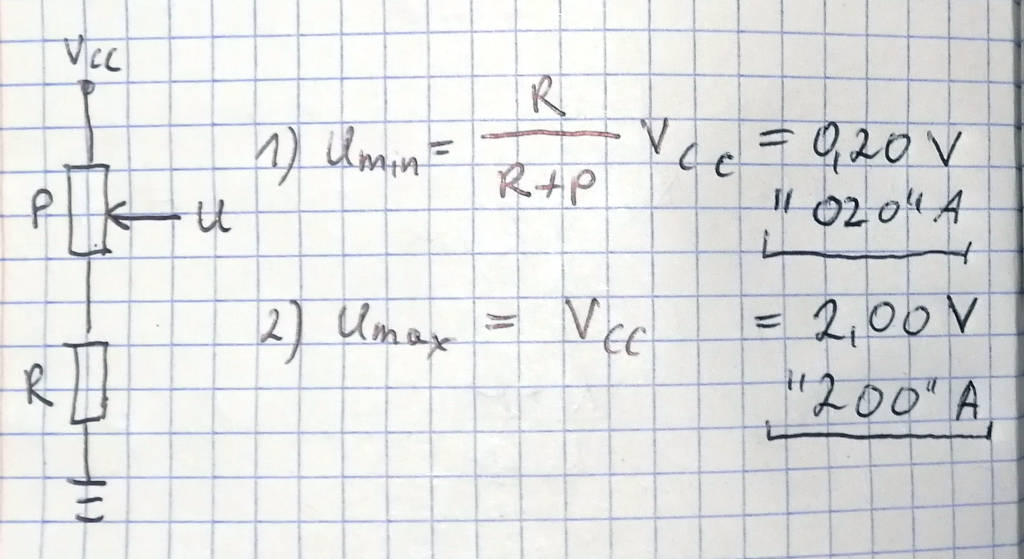 VCC
P
U
R
1) Umin = R / R+P VCC = 0,20 V
"020" A
2) Umax = VCC = 2,00 V
"200" A